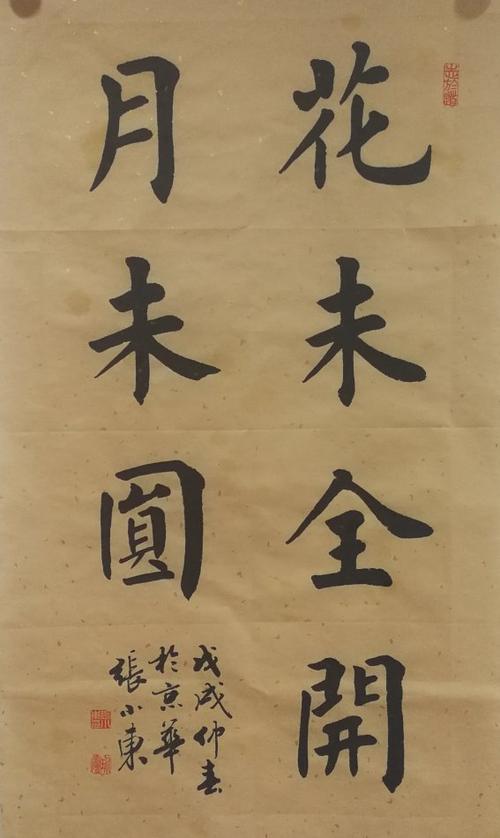 花未全開
月未圓
戊戌仲春
於京華
張小東